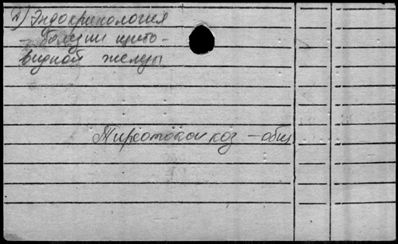 2) Эндокринология
- Болезни щито-
видной железы
Тиреотоксикоз - общ